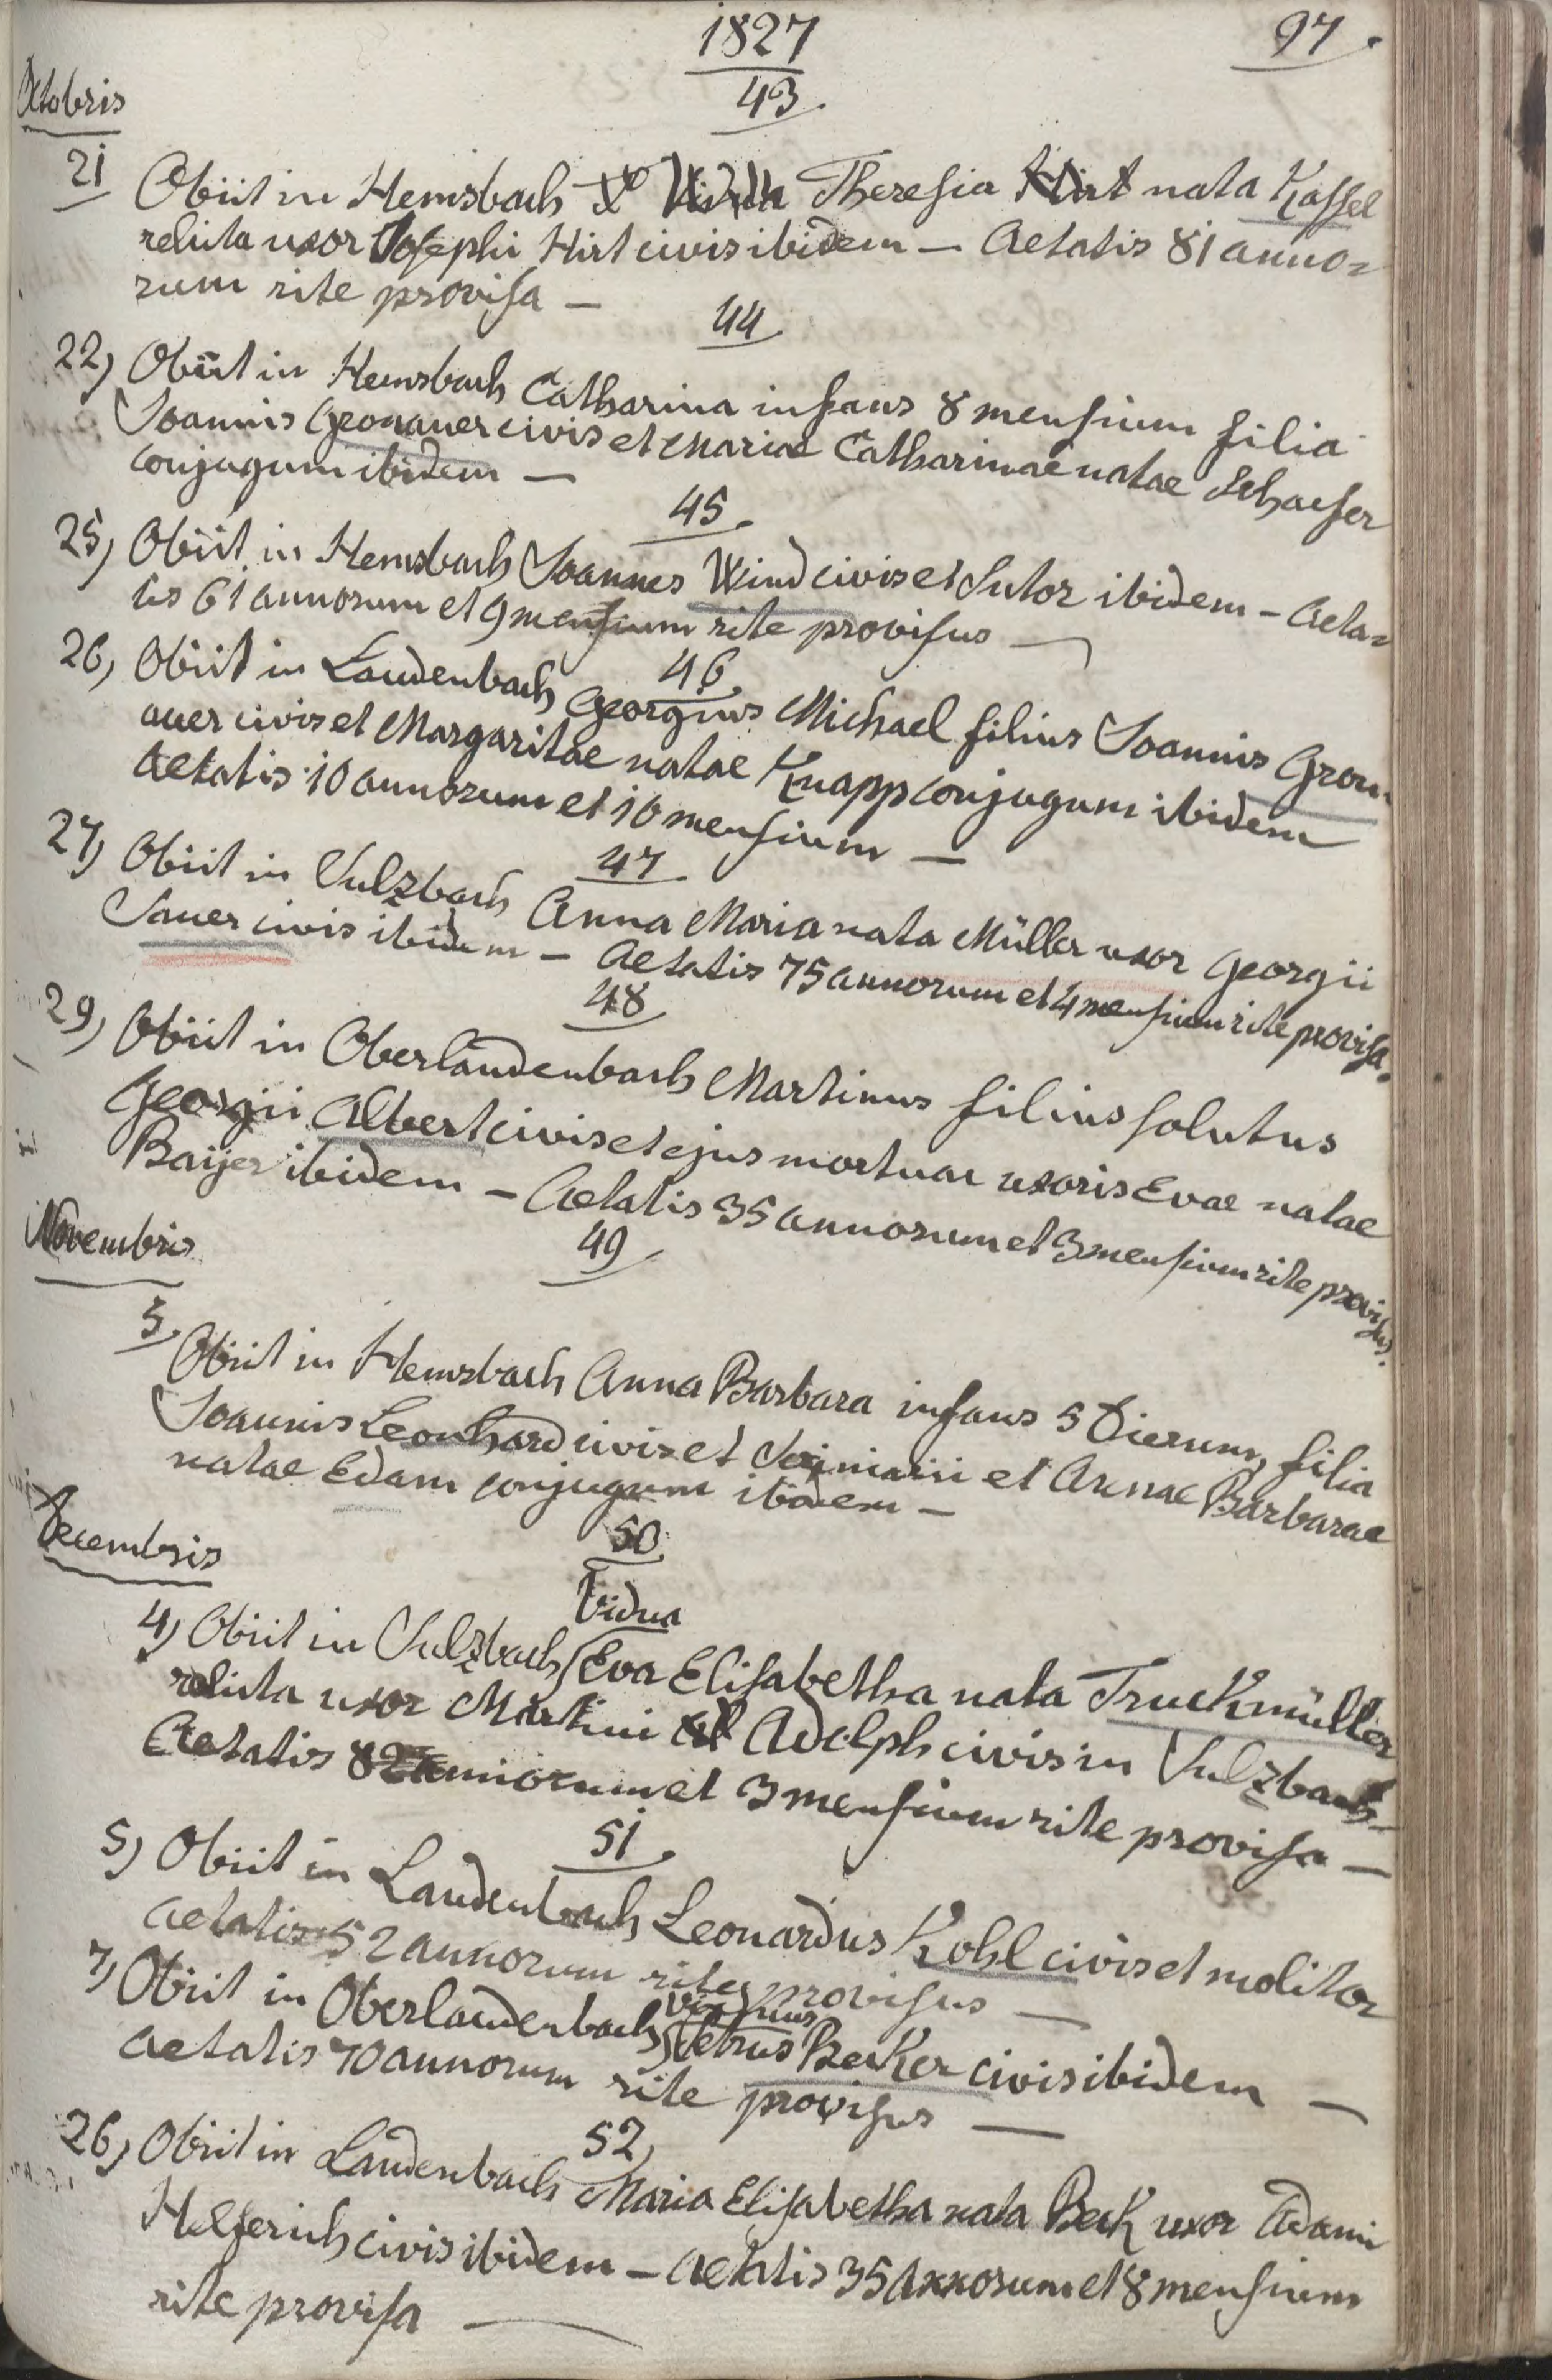 1827
97.
43.
Octobris
21 Obiit in Hemsbach Theresia Hirt nata Kassel
relicta uxor Josephi Hirt civis ibidem — Aetatis 81 anno=
rum rite provisa —
44
22) Obiit in Hemsbach Catharina infans 8 mensium filia
Joannis Gronauer civis et Mariae Catharinae natae Schaefer
conjugum ibidem —
45.
25) Obiit in Hemsbach Joannes Wind civis et Sutor ibidem – Aeta=
tis 61 annorum et 9 mensium rite provisus —
46.
26) Obiit in Laudenbach Georgius Michael filius Joannis Gron=
auer civis et Margaritae natae Knapp conjugum ibidem
Aetatis 10 annorum et 10 mensium —
47
27) Obiit in Sulzbach Anna Maria nata Müller uxor Georgii
Sauer civis ibidem – Aetatis 75 annorum et 4 mensium rite provisa.
48
29) Obiit in Oberlaudenbach Martinus filius solutus
Georgii Albert civis et ejus mortuae uxoris Evae natae
Baijer ibidem – Aetatis 35 annorum et 3 mensium rite provisus.
Novembris
49
5. Obiit in Hemsbach Anna Barbara infans 5 Dierum, filia
Joannis Leonhard civis et et Annae Barbarae
natae Edam conjugum ibidem —
Decembris
50
Vidua
4) Obiit in Sulzbach Eva Elisabetha nata Truckmüller
relicta uxor Martini Adelph civis in Sulzbach—
Aetatis 82 annorum et 3 mensium rite provisa —
51.
5) Obiit in Laudenbach Leonardus Kohl civis et molitor
Aetatis 52 annorum rite provisus —
viduus
7) Obiit in Oberlaudenbach Petrus Becker civis ibidem —
Aetatis 70 annorum rite provisus —
52)
26) Obiit in Laudenbach Maria Elisabetha nata Beck uxor Adami
Helferich civis ibidem – Aetatis 35 Annorum et 8 mensium
rite provisa —